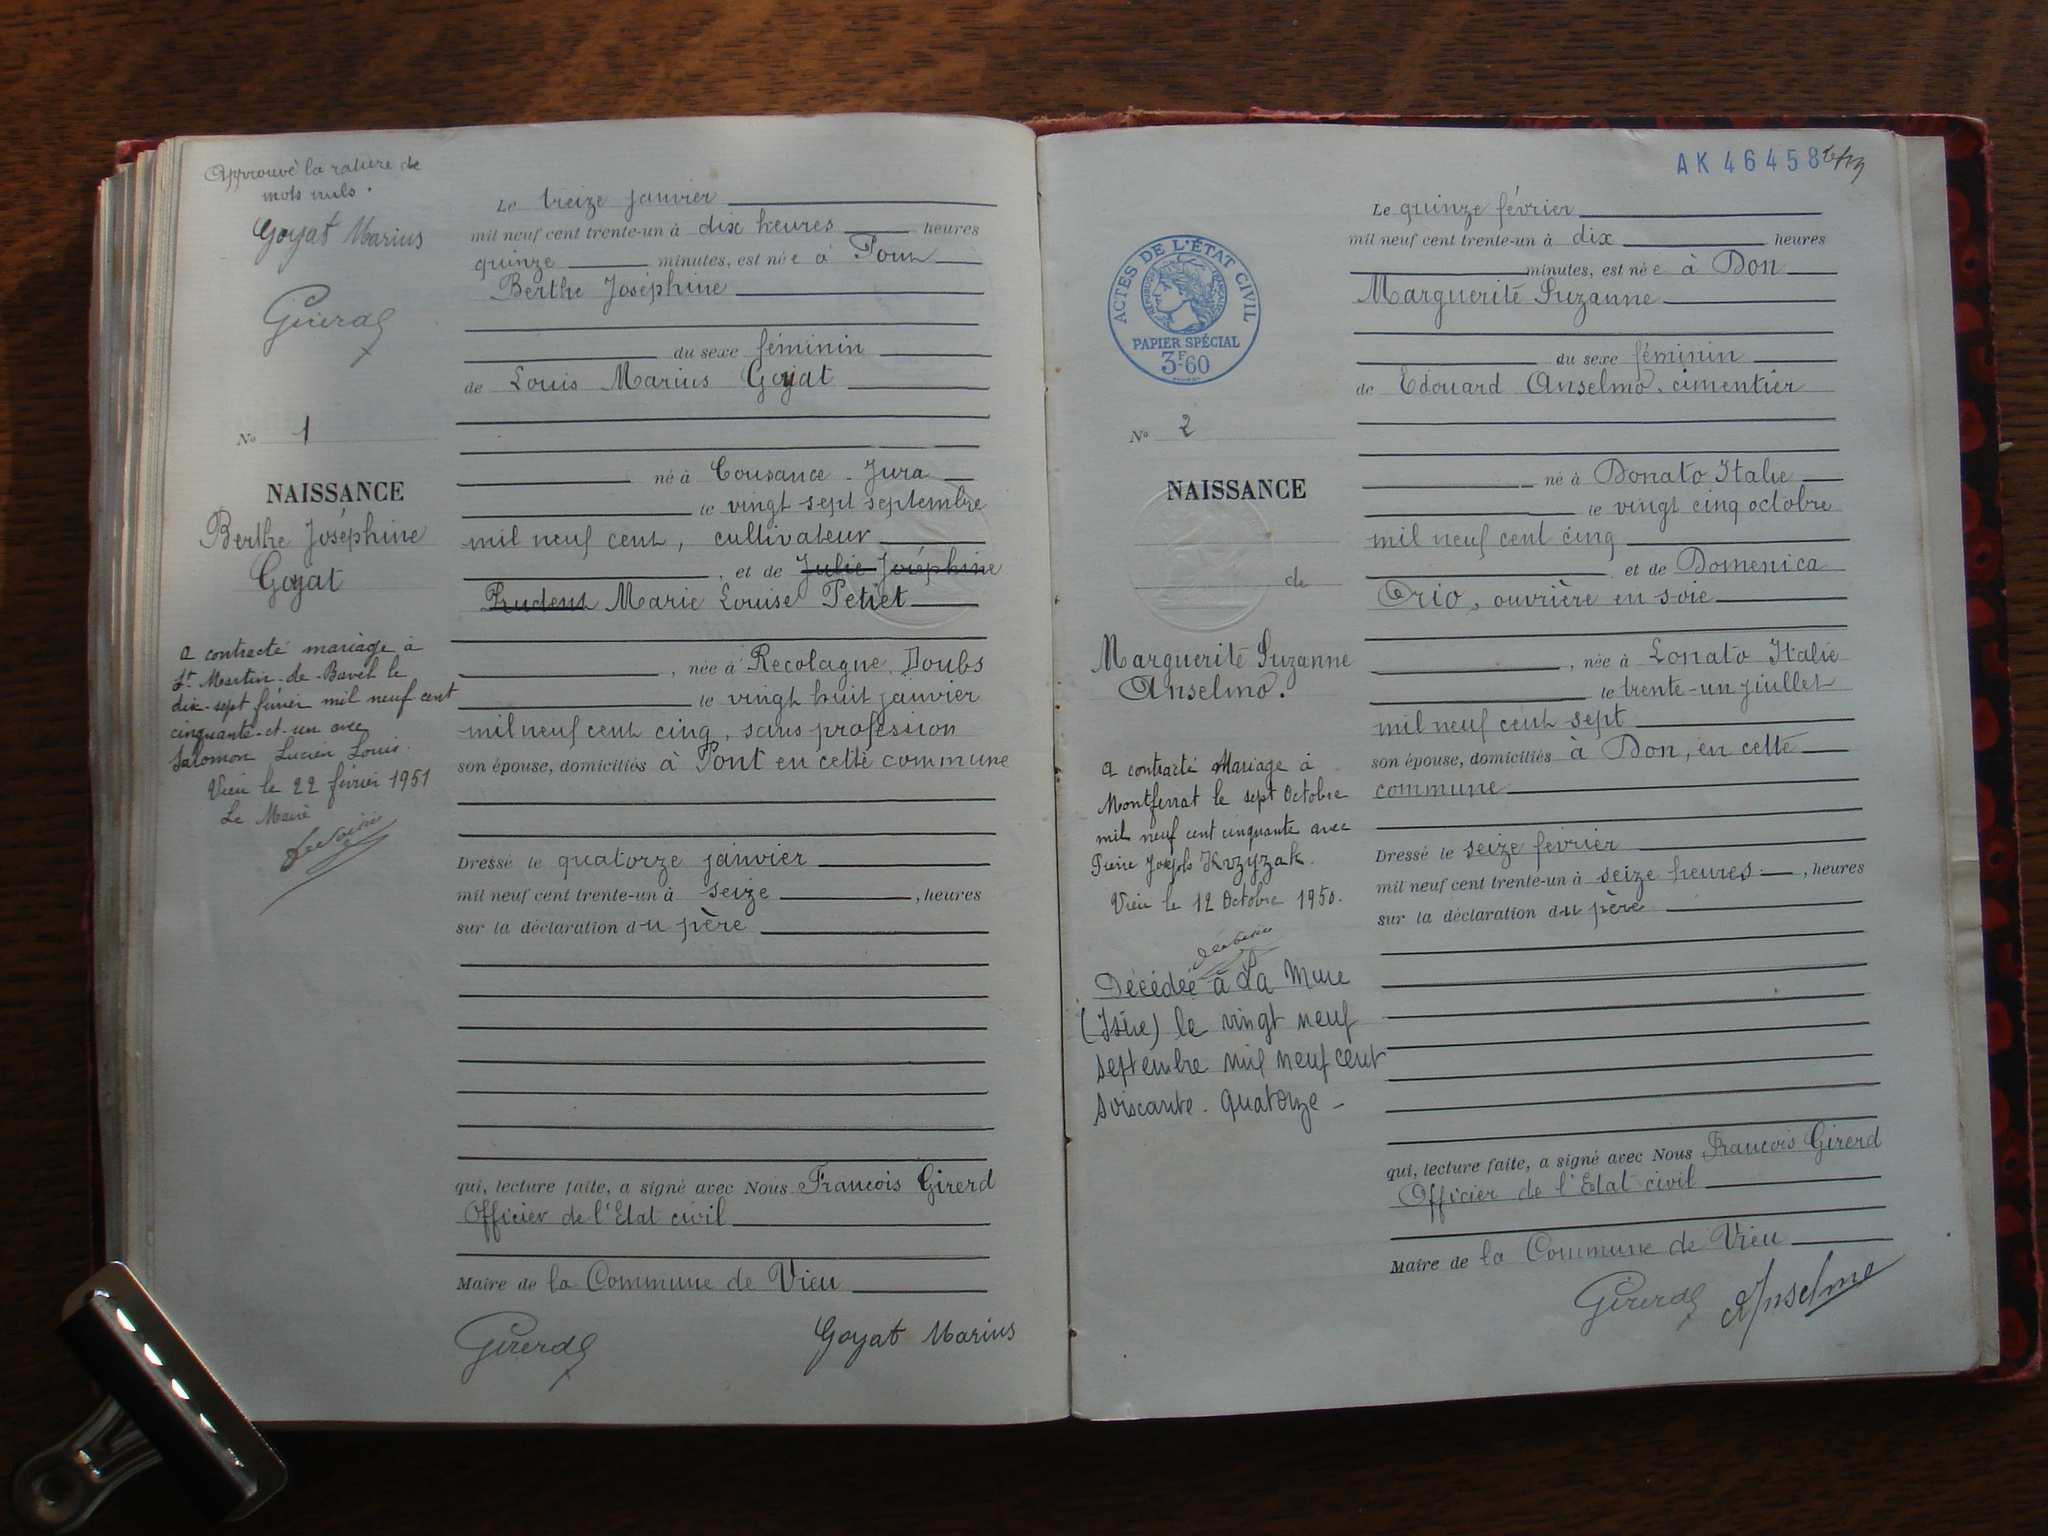 Approuvé la rature de
mots nuls.
Goyat Marius
Girerd
Nº 1
NAISSANCE
Berthe Joséphine
Goyat
a contracté mariage à
St Martin-de-Bavel le
dix-sept février mil neuf cent
cinquante-et-un avec
Salomon Lucien Louis.
Vieu le 22 février 1951
Le Maire
Le treize janvier
mil neuf cent trente-un à dix heures heures
quinze minutes, est née à Pont
Berthe Joséphine
du sexe féminin
de Louis Marius Goyat
né à Cousance - Jura
le vingt sept septembre
mil neuf cent, cultivateur
et de Julie Joséphine
Prudent Marie Louise Petiet
, née à Recolagne Doubs
le vingt huit janvier
mil neuf cent cinq, sans profession
son épouse, domiciliés à Pont en cette commune
Dressé le quatorze janvier
mil neuf cent trente-un à seize , heures
sur la déclaration du père
qui, lecture faite, a signé avec Nous Francois Girerd
Officier de l'Etat civil
Maire de la Commune de Vieu
Girerd Goyat Marius
AK 46458
ACTES DE L'ÉTAT CIVIL
RÉPUBLIQUE FRANÇAISE
PAPIER SPÉCIAL
3F60
Nº 2
NAISSANCE
de
Marguerite Suzanne
Anselmo.
a contracté Mariage à
Montferrat le sept Octobre
mil neuf cent cinquante avec
Pierre Joseph Krzyzak.
Vieu le 12 Octobre 1950.
Décédée à La Mure
(Isère) le vingt neuf
septembre mil neuf cent
soixante-quatorze-
Le quinze février
mil neuf cent trente-un à dix heures
minutes, est née à Don
Marguerite Suzanne
du sexe féminin
de Edouard Anselmo, cimentier
né à Donato Italie
le vingt cinq octobre
mil neuf cent cinq
et de Domenica
Orio, ouvrière en soie
, née à Lonato Italie
le trente-un juillet
mil neuf cent sept
son épouse, domiciliés à Don, en cette
commune
Dressé le seize février
mil neuf cent trente-un à seize heures , heures
sur la déclaration du père
qui, lecture faite, a signé avec Nous Francois Girerd
Officier de l'Etat civil
Maire de la Commune de Vieu
Girerd Anselmo